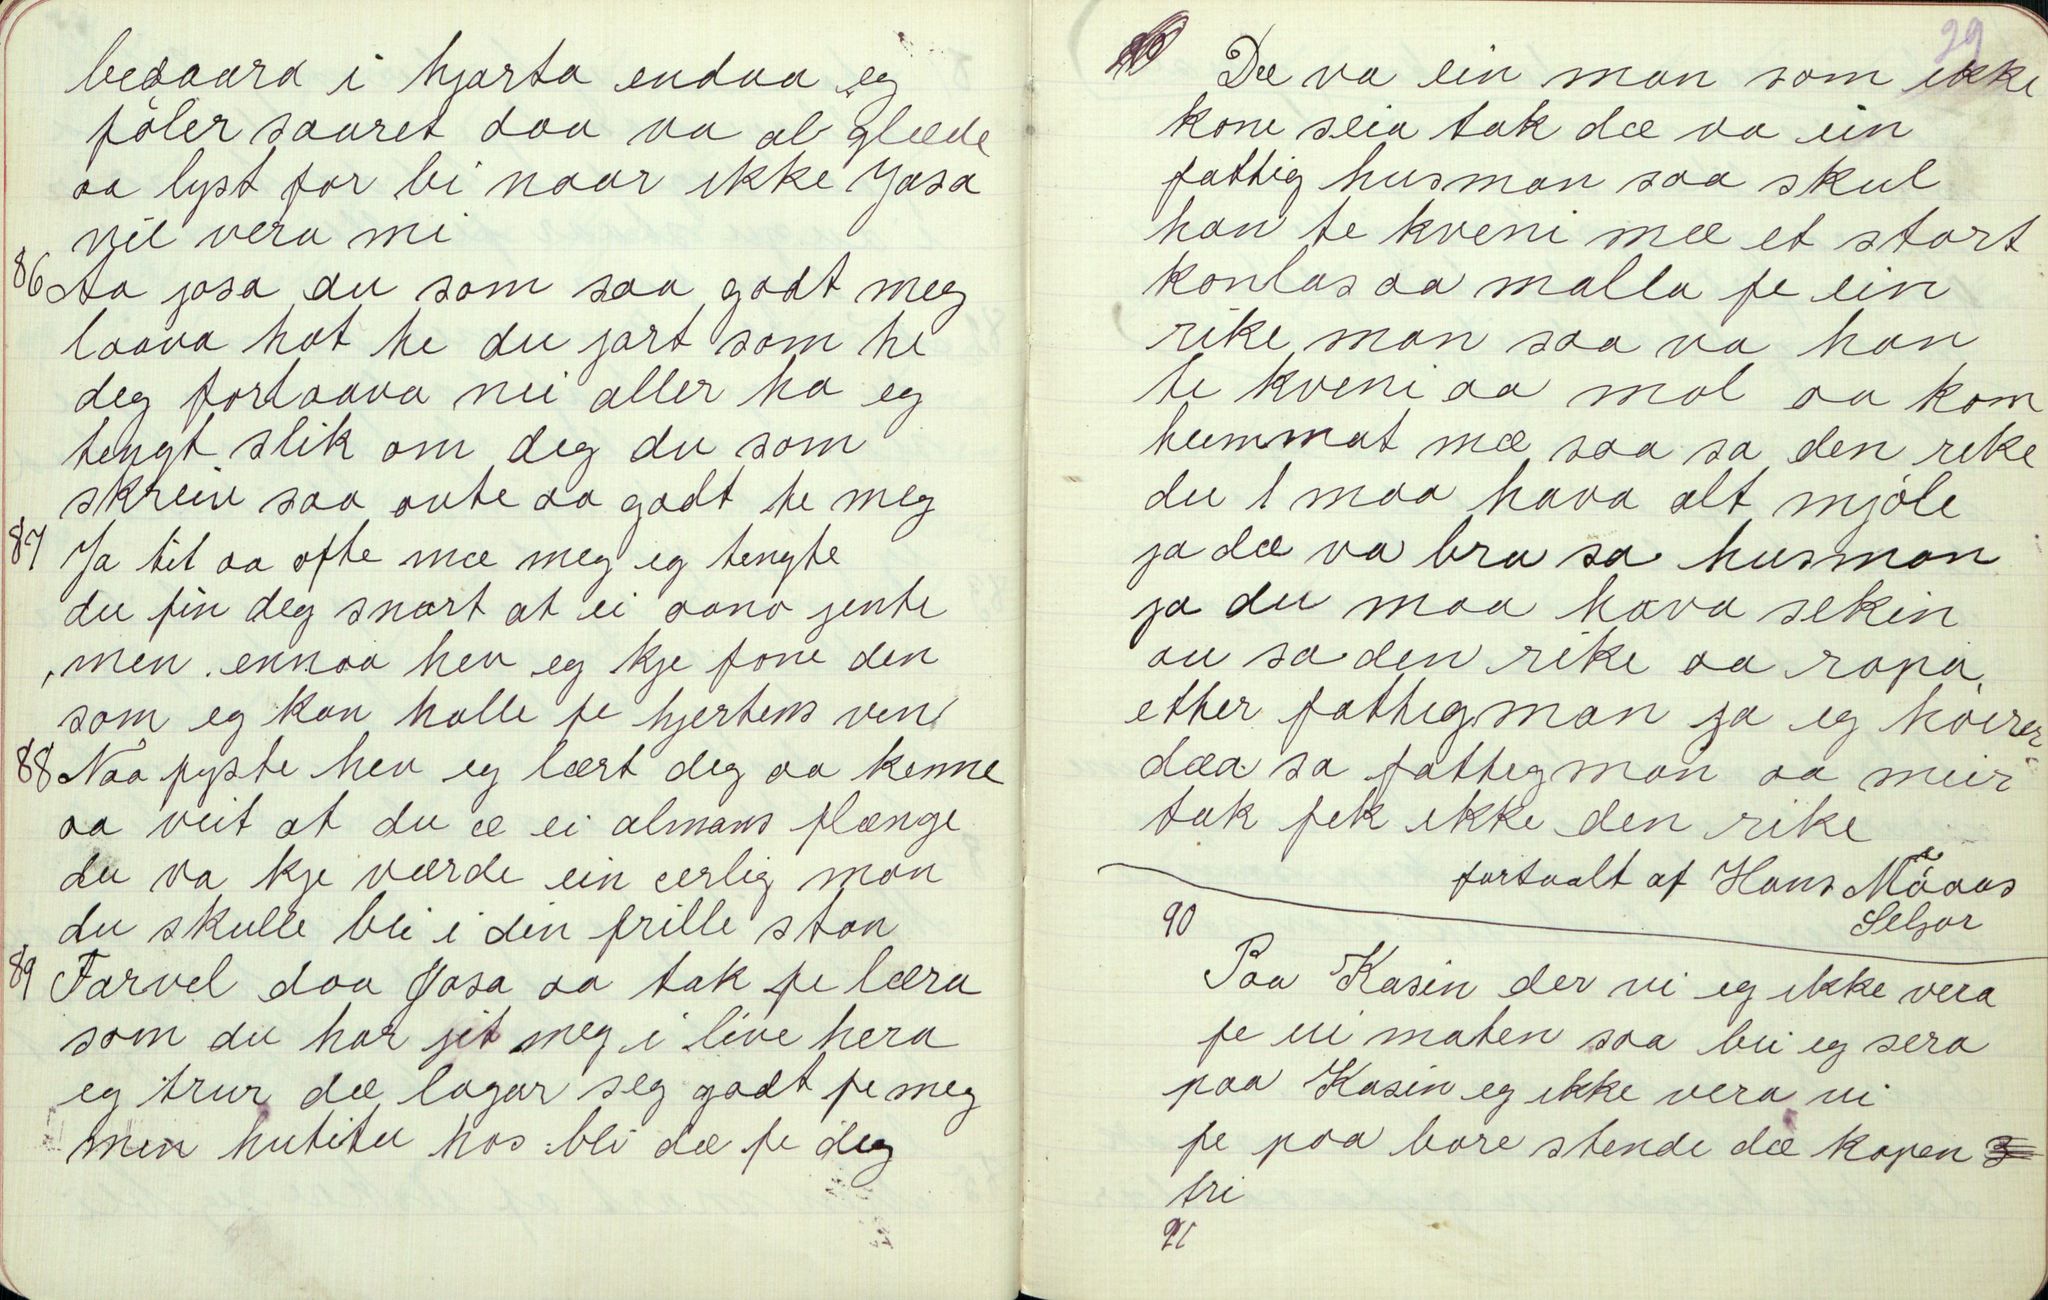 bedaara i hjarta endaa eg
föler saaret daa va al glæde
aa lyst for bi naar ikke Jasa
vil vera mi
86 Aa josa du som saa godt meg
laava hat he du jort som he
deg forlaava nei aller ha eg
tengt slik om deg du som
skreiv saa ovte aa godt te meg
87 Ja tit aa ofte mæ meg eg tengte
du fin deg snart at ei aano jente
men ennaa hev eg kje fone den
som eg kan halle fe hjertens ven
88 Naa fyste hev eg lært deg aa kenne
aa veit at du æ ei almans flænge
du va kje værde ein ærlig man
du skulle bli i din frille stan
89 Farvel daa Josa aa tak fe læra
som du har jit meg i live hera
eg trur dæ lagar seg godt fe meg
men hutitu hos bli dæ fe deg
29
Dæ va ein man som ikke
kone seia tak dæ va ein
fattig husman saa skul
han te kveni mæ et stort
konlas aa malla fe ein
rike man saa va han
te kveni aa mol aa kom
heimmat mæ saa sa den rike
du 1 maa hava alt mjöle
ja dæ va bra sa husman
ja du maa hava sekin
au sa den rike aa ropa
etter fattigman ja eg höirer
dæa sa fattigman aa meir
tak fek ikke den rike
fortaalt af Hans Möaas
Seljor
90
Paa Kasin der vi eg ikke vera
fe ui maten saa bei eg sera
paa Kasin eg ikke vera ui
fe paa bore stende dæ kopen
tri
91